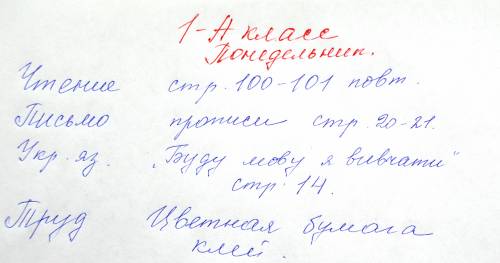 1-А класс
Понедельник.
Чтение стр. 100-101 повт.
Письмо прописи стр. 20-21.
Укр. яз. „Буду мову я вивчати"
стр. 14.
Труд Цветная бумага
клей.